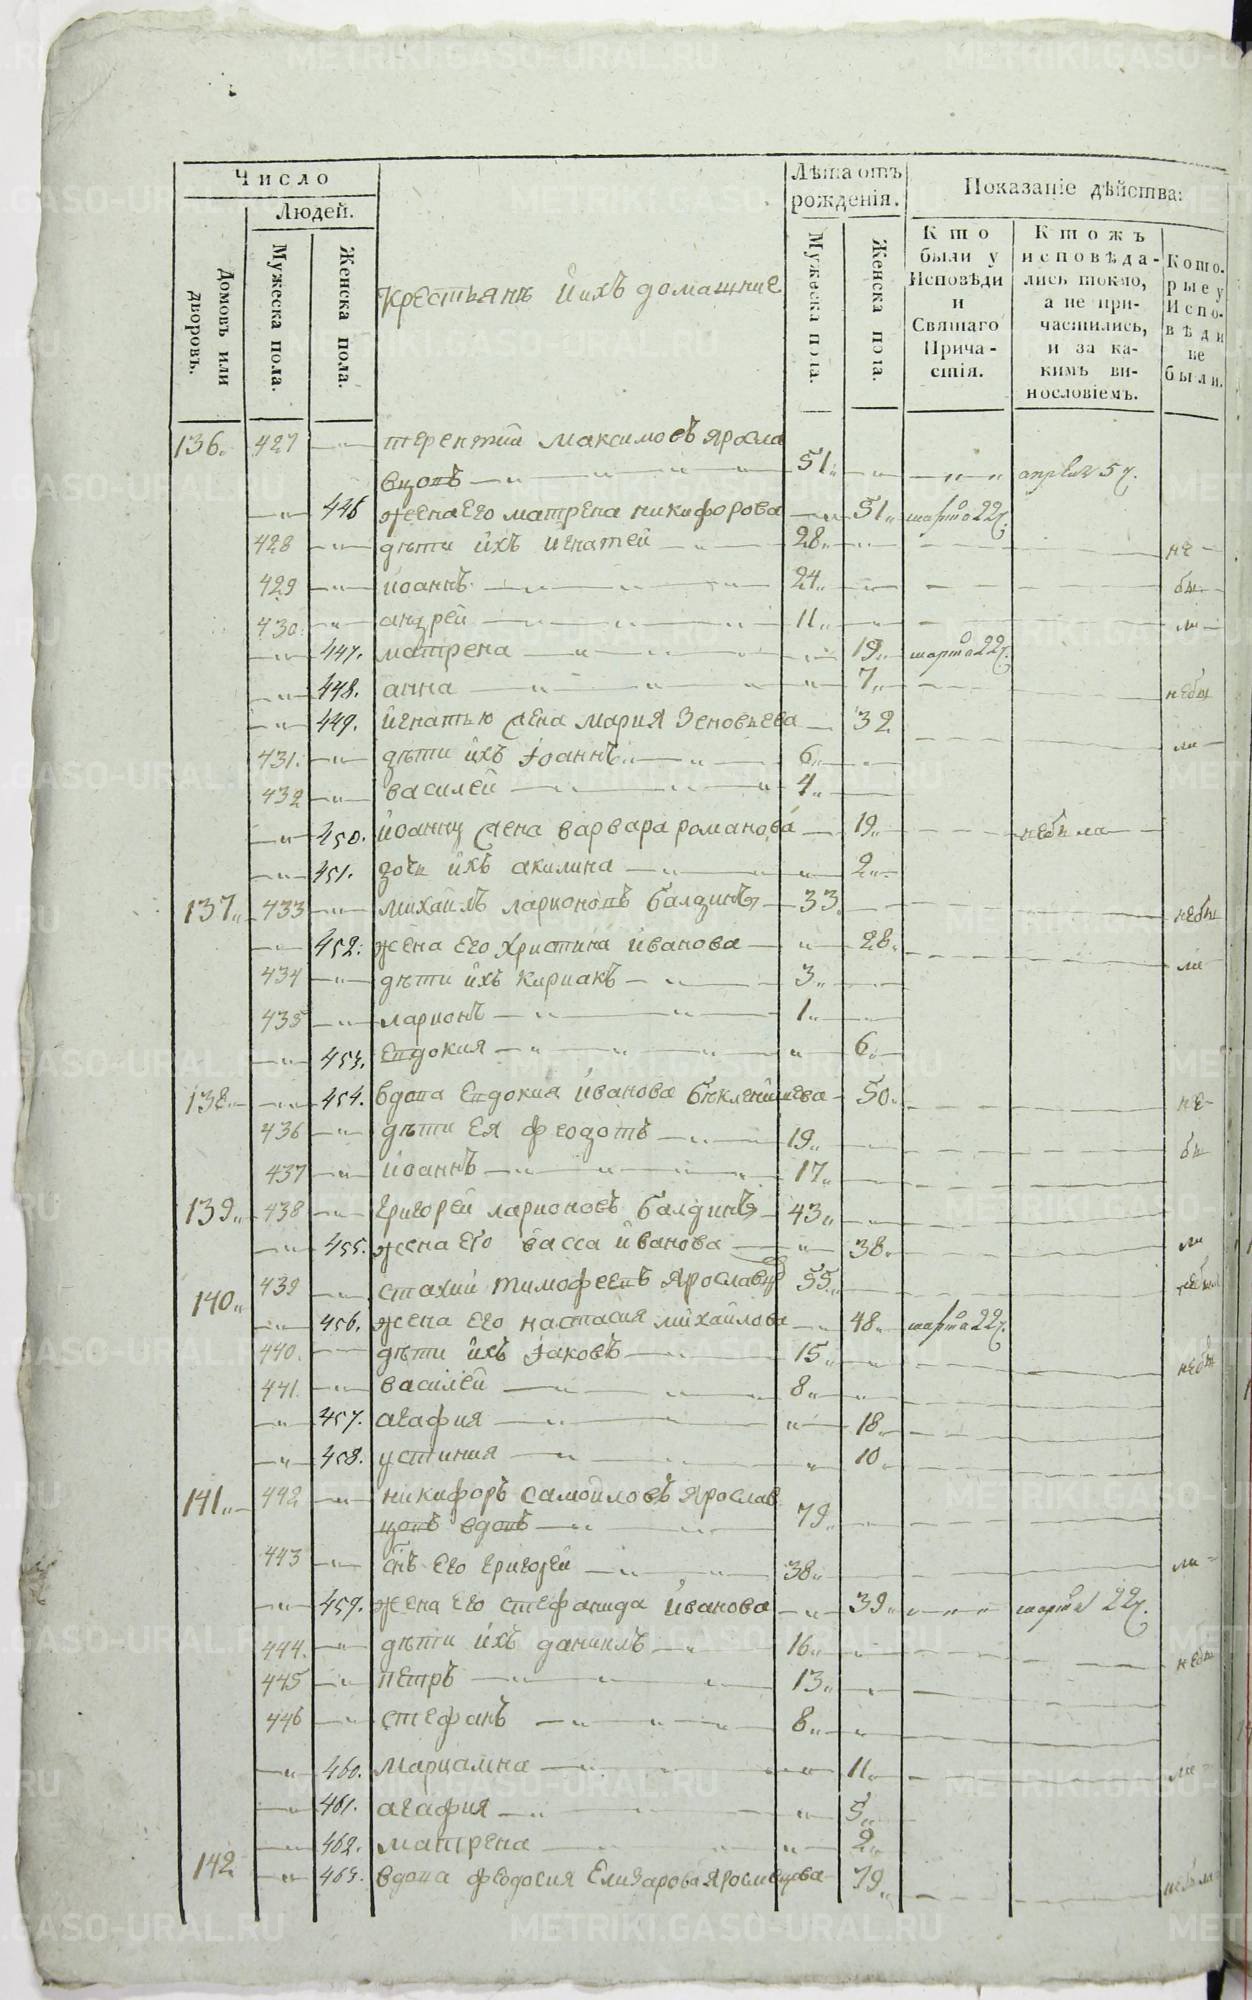 Число
Людей.
Домовъ или дворовъ.
Мужеска пола.
Женска пола.
Крестьянъ ихъ домашние
Лѣта отъ рожденія.
Мужеска пола.
Женска пола.
Показаніе дѣйства:
Кто были у Исповѣди и Святаго Причастія.
Ктожъ исповѣдались токмо, а не причастились, и за какимъ винословіемъ.
Которые у Исповѣди не были.
136. 427 терентий максимовъ яросла
вцовъ 51 апреля 5 ч.
446 жена его матрена никифорова 51 марта 22 ч.
428 дѣти ихъ игнатей 28 не
429 иоаннъ 24 бы
430 андрей 11 ли
447. матрена 19 марта 22 ч.
448. анна 7 небы
449. игнатью жена мария зеновьева 32 ли
431 дѣти ихъ іоаннъ 6
432 василей 4
450. иоанну жена варвара романова 19 небыла
451. дочь ихъ акилина 2
137 433 михаилъ ларионовъ балдинъ 33 небы
452. жена его христина иванова 28 ли
434 дѣти ихъ кириакъ 3
435 ларионъ 1
453. евдокия 6
138 454. вдова евдокия иванова 50 не
436 дѣти ея феодотъ 19 бы
437 иоаннъ 17
139 438 григорей ларионовъ балдинъ 43
455. жена его васса иванова 38 ли
140 439 стахий тимофеевъ ярославцо 55 небыл
456. жена его настасия михайлова 48 марта 22 ч.
440. дѣти ихъ іаковъ 15 небы
441 василей 8
457. агафия 18
458. устиния 10
141 442 никифоръ самойловъ ярослав
цовъ вдовъ 79
443 сынъ его григорей 38 ли
459. жена его стефанида иванова 39 марта 22 ч.
444. дѣти ихъ даниилъ 16 небы
445 петръ 13
446 стефанъ 8
460. мариамна 11 ли
461. агафия 5
462. матрена 2
142 463. вдова феодосия елизарова ярославцова 79 небыла
METRIKI.GASO-URAL.RU